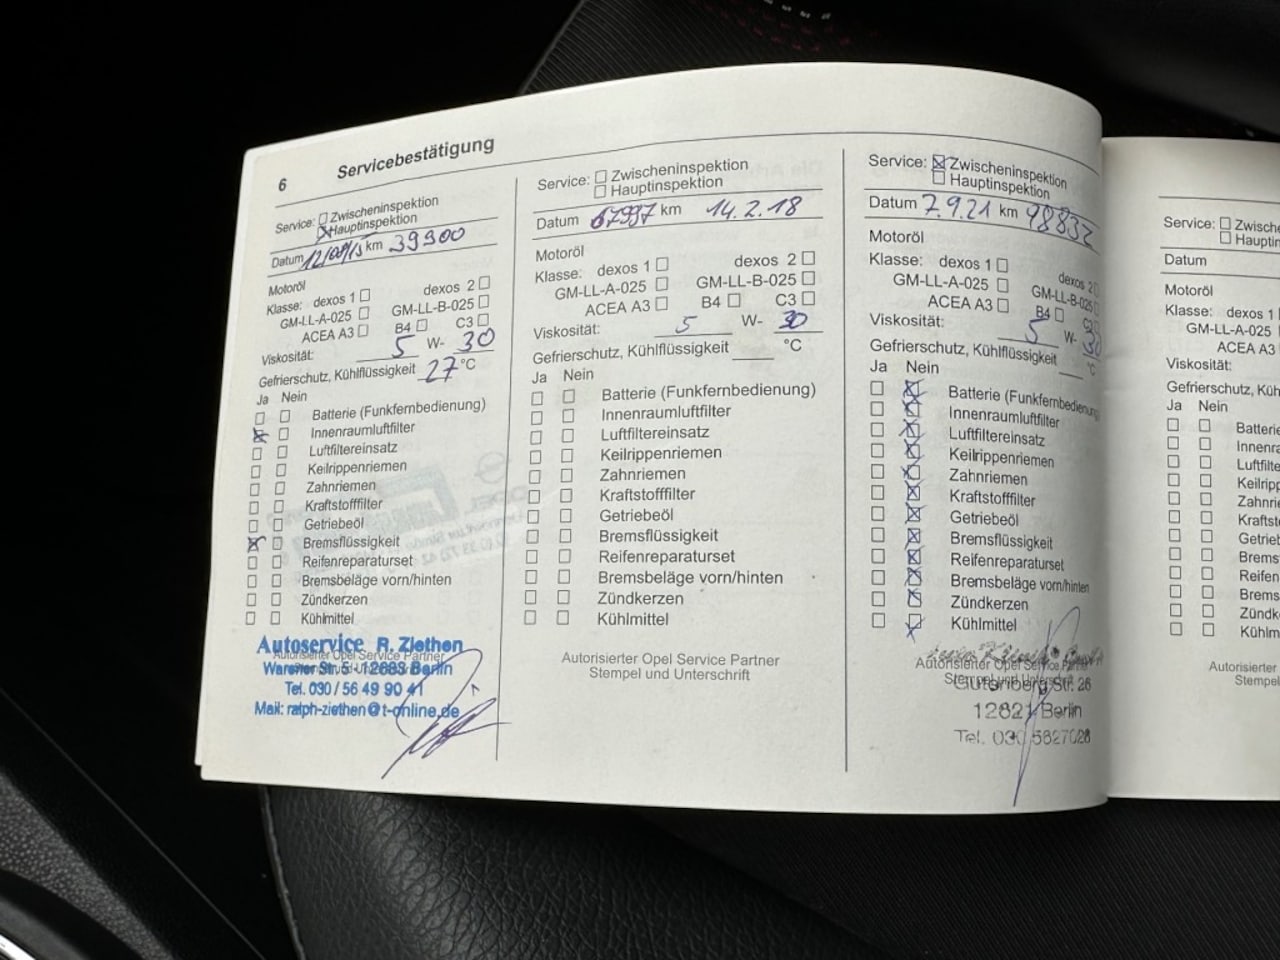 6 Servicebestätigung
Service: Zwischeninspektion
Hauptinspektion
Datum 12/08/15 km 39300
Motoröl
Klasse: dexos 1 dexos 2
GM-LL-A-025 GM-LL-B-025
ACEA A3 B4 C3
Viskosität: 5 W- 30
Gefrierschutz, Kühlflüssigkeit 27 °C
Ja Nein
Batterie (Funkfernbedienung)
Innenraumluftfilter
Luftfiltereinsatz
Keilrippenriemen
Zahnriemen
Kraftstofffilter
Getriebeöl
Bremsflüssigkeit
Reifenreparaturset
Bremsbeläge vorn/hinten
Zündkerzen
Kühlmittel
Autoservice R. Ziethen
Autorisierter Opel Service Partner
Str. 5 · 12683 Berlin
Tel. 030 / 56 49 90 41
Mail: ralph-ziethen@t-online.de
Service: Zwischeninspektion
Hauptinspektion
Datum 67997 km 14.2.18
Motoröl
Klasse: dexos 1 dexos 2
GM-LL-A-025 GM-LL-B-025
ACEA A3 B4 C3
Viskosität: 5 W- 30
Gefrierschutz, Kühlflüssigkeit °C
Ja Nein
Batterie (Funkfernbedienung)
Innenraumluftfilter
Luftfiltereinsatz
Keilrippenriemen
Zahnriemen
Kraftstofffilter
Getriebeöl
Bremsflüssigkeit
Reifenreparaturset
Bremsbeläge vorn/hinten
Zündkerzen
Kühlmittel
Autorisierter Opel Service Partner
Stempel und Unterschrift
Service: Zwischeninspektion
Hauptinspektion
Datum 7.9.21 km 98832
Motoröl
Klasse: dexos 1 dexos 2
GM-LL-A-025 GM-LL-B-025
ACEA A3 B4 C3
Viskosität: 5 W- 30
Gefrierschutz, Kühlflüssigkeit °C
Ja Nein
Batterie (Funkfernbedienung
Innenraumluftfilter
Luftfiltereinsatz
Keilrippenriemen
Zahnriemen
Kraftstofffilter
Getriebeöl
Bremsflüssigkeit
Reifenreparaturset
Bremsbeläge vorn/hinten
Zündkerzen
Kühlmittel
Autorisierter Opel Service Partner
Stempel und Unterschrift
Gutenberg Str. 26
12621 Berlin
Tel. 030 5627028
Service: Zwische
Hauptin
Datum
Motoröl
Klasse: dexos 1
GM-LL-A
ACEA A3
Viskosität:
Gefrierschutz, Küh
Ja Nein
Batterie
Innenra
Luftfilte
Keilripp
Zahnrie
Kraftst
Getrieb
Brems
Reifen
Brems
Zündk
Kühlm
Autorisierter
Stempel